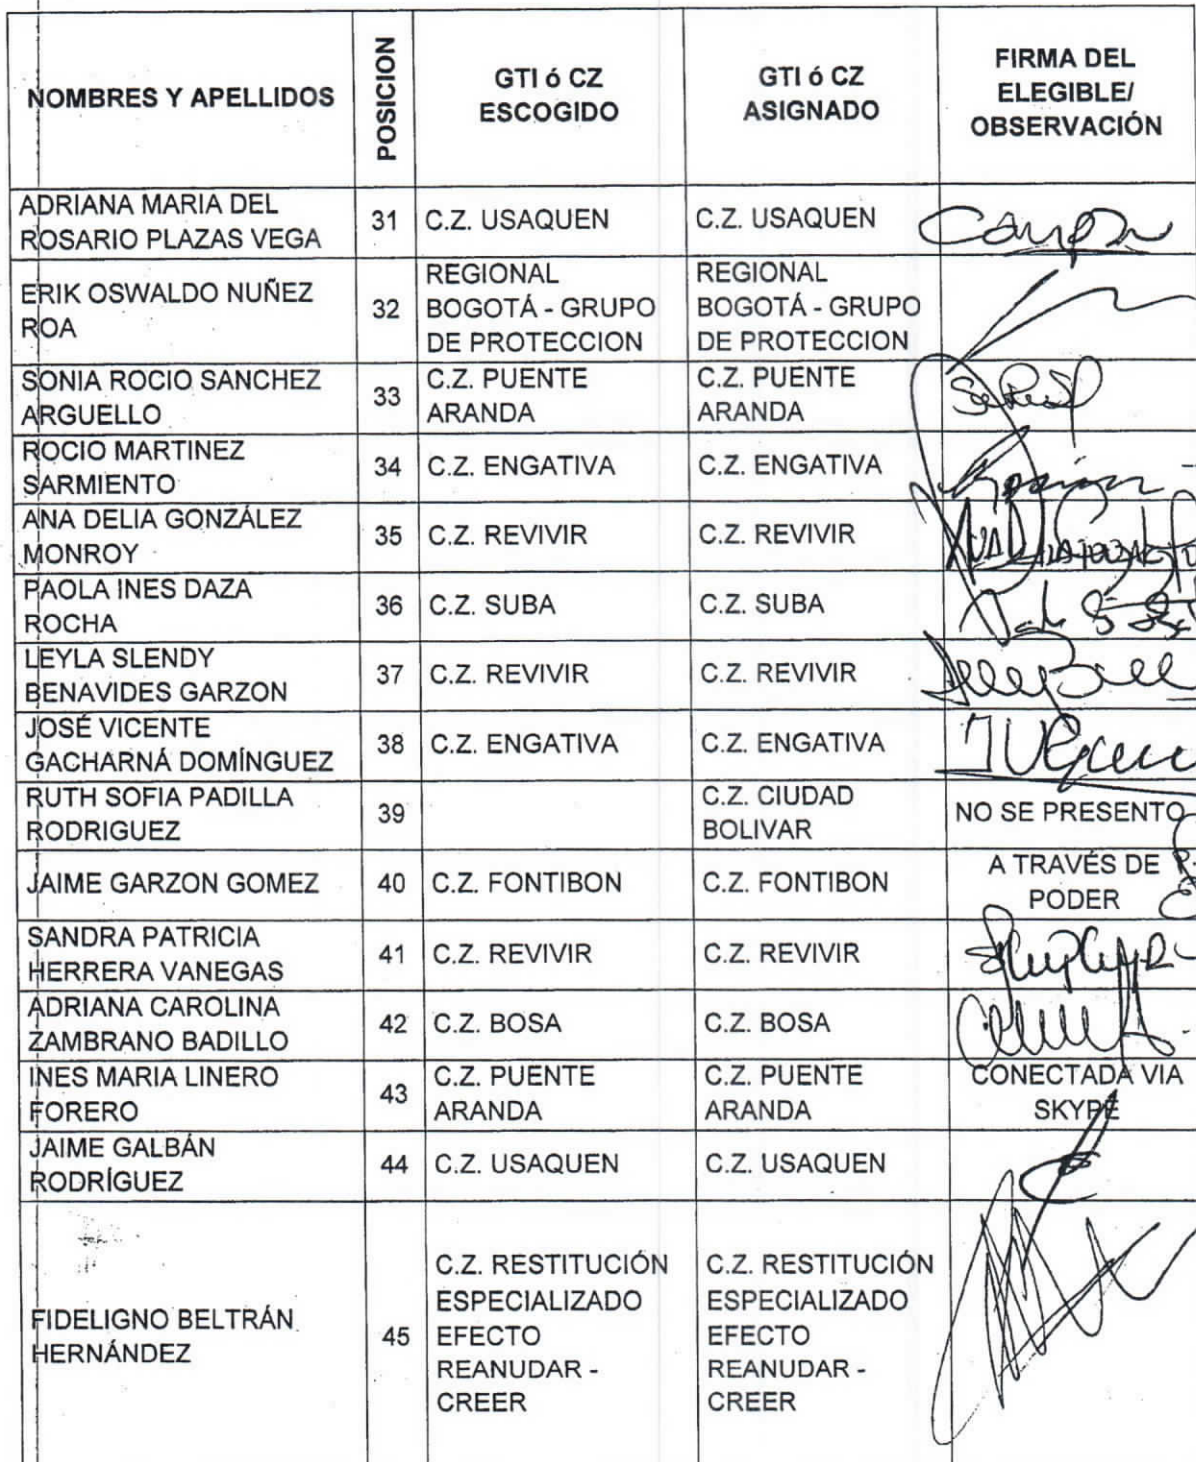 NOMBRES Y APELLIDOS
POSICION
GTI ó CZ
ESCOGIDO
GTI ó CZ
ASIGNADO
FIRMA DEL
ELEGIBLE/
OBSERVACIÓN
ADRIANA MARIA DEL
ROSARIO PLAZAS VEGA
31
C.Z. USAQUEN
C.Z. USAQUEN
ERIK OSWALDO NUÑEZ
ROA
32
REGIONAL
BOGOTÁ - GRUPO
DE PROTECCION
REGIONAL
BOGOTÁ - GRUPO
DE PROTECCION
SONIA ROCIO SANCHEZ
ARGUELLO
33
C.Z. PUENTE
ARANDA
C.Z. PUENTE
ARANDA
ROCIO MARTINEZ
SARMIENTO
34
C.Z. ENGATIVA
C.Z. ENGATIVA
ANA DELIA GONZÁLEZ
MONROY
35
C.Z. REVIVIR
C.Z. REVIVIR
PAOLA INES DAZA
ROCHA
36
C.Z. SUBA
C.Z. SUBA
LEYLA SLENDY
BENAVIDES GARZON
37
C.Z. REVIVIR
C.Z. REVIVIR
JOSÉ VICENTE
GACHARNÁ DOMÍNGUEZ
38
C.Z. ENGATIVA
C.Z. ENGATIVA
RUTH SOFIA PADILLA
RODRIGUEZ
39
C.Z. CIUDAD
BOLIVAR
NO SE PRESENTO
JAIME GARZON GOMEZ
40
C.Z. FONTIBON
C.Z. FONTIBON
A TRAVÉS DE
PODER
SANDRA PATRICIA
HERRERA VANEGAS
41
C.Z. REVIVIR
C.Z. REVIVIR
ADRIANA CAROLINA
ZAMBRANO BADILLO
42
C.Z. BOSA
C.Z. BOSA
INES MARIA LINERO
FORERO
43
C.Z. PUENTE
ARANDA
C.Z. PUENTE
ARANDA
CONECTADA VIA
SKYPE
JAIME GALBÁN
RODRÍGUEZ
44
C.Z. USAQUEN
C.Z. USAQUEN
FIDELIGNO BELTRÁN
HERNÁNDEZ
45
C.Z. RESTITUCIÓN
ESPECIALIZADO
EFECTO
REANUDAR -
CREER
C.Z. RESTITUCIÓN
ESPECIALIZADO
EFECTO
REANUDAR -
CREER